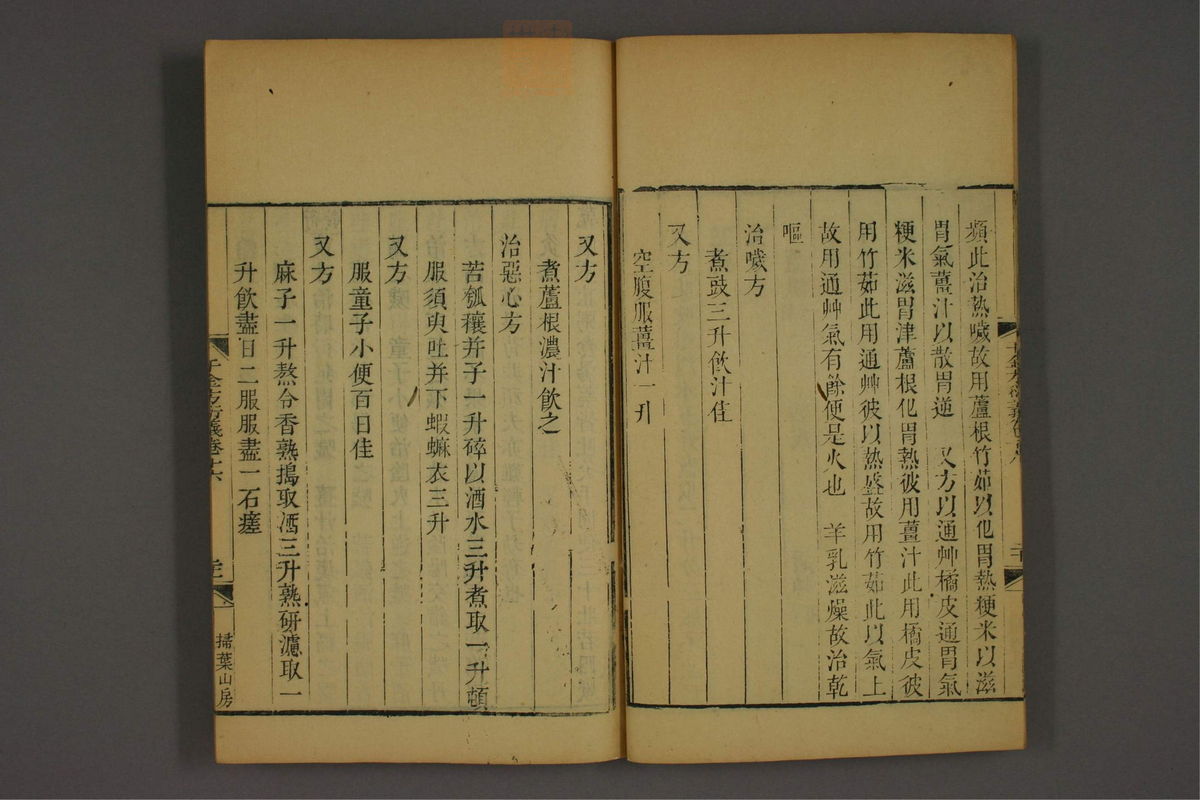 頻此治熱噦故用蘆根竹茹以化胃熱粳米以滋
胃氣薑汁以散胃逆　又方以通艸橘皮通胃氣
粳米滋胃津蘆根化胃熱彼用薑汁此用橘皮彼
用竹茹此用通艸彼以熱盛故用竹茹此以氣上
故用通艸氣有餘便是火也　羊乳滋燥故治乾
嘔
治噦方
煮豉三升飲汁佳
又方
空腹服薑汁一升
又方
煮蘆根濃汁飲之
治惡心方
苦瓠穰并子一升碎以酒水三升煮取一升頓
服須臾吐并下蝦蟆衣三升
又方
服童子小便百日佳
又方
麻子一升熬令香熟搗取酒三升熟研濾取一
升飲盡日二服服盡一石瘥
千金方衍義卷十六
掃葉山房